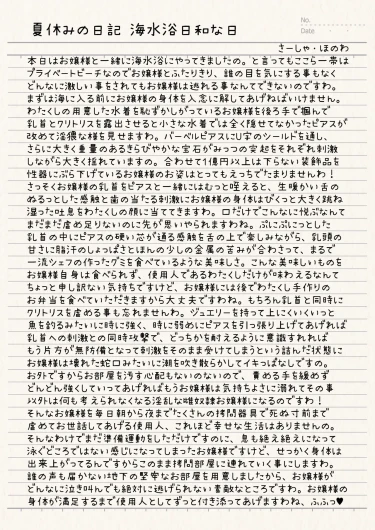 No.
Date
夏休みの日記 海水浴日和な日
さーしゃ・ほのわ
本日はお嬢様と一緒に海水浴にやってきましたの。と言ってもここら一帯は
プライベートビーチなのでお嬢様とふたりきり、誰の目を気にする事もなく
どんなに激しい事をされてもお嬢様は逃れる事なんてできないのですわ。
まずは海に入る前にお嬢様の身体を入念に解してあげねばいけません。
わたくしの用意した水着を恥ずかしがっているお嬢様を後ろ手で掴んで
乳首とクリトリスを露出させると小さな水着では全く隠せてなかったピアスが
改めて淫猥な様を見せますわ。バーベルピアスにU字のシールドを通し、
さらに大きく重量のあるきらびやかな宝石がみっつの突起をそれぞれ刺激
しながら大きく揺れていますの。合わせて1億円以上は下らない装飾品を
性器にぶら下げているお嬢様のお姿はとてもえっちでたまりませんわ!
さっそくお嬢様の乳首をピアスと一緒にはむっと咥えると、生暖かい舌の
ぬるっとした感触と歯の当たる刺激にお嬢様の身体はびくっと大きく跳ね
湿った吐息をわたくしの顔に当ててきますわ。口だけでこんなに悦ぶなんて
まだまだ責め足りないのに先が思いやられますわね。ぷにぷにっとした
乳首の中にピアスの硬い芯が通る感触を舌の上で楽しみながら、乳頭の
甘さに脂汗のしょっぱさとほんの少しの金属の苦みが合わさって、まるで
一流シェフの作ったグミを食べているような美味しさ。こんな美味しいものを
お嬢様自身は食べられず、使用人であるわたくしだけが味わえるなんて
ちょっと申し訳ない気持ちですけど、お嬢様には後でわたくし手作りの
お弁当を食べていただきますから大丈夫ですわね。もちろん乳首と同時に
クリトリスを虐める事も忘れませんわ。ジュエリーを持って上にくいくいっと
魚を釣るみたいに時に強く、時に弱めにピアスを引っ張り上げてあげれば
乳首への刺激との同時攻撃で、どっちかを耐えるように意識すれば
もう片方が無防備となって刺激をそのまま受けてしまうという詰んだ状態に
お嬢様は壊れた蛇口みたいに潮を吹き散らかしてイキっぱなしですの。
お外ですからお部屋を汚す心配もないのないので、責める手を緩めず
どんどん強くしていってあげればもうお嬢様は気持ちよさに溺れてその事
以外は何も考えられなくなる淫乱な雌奴隷お嬢様になるのですわ!
そんなお嬢様を毎日朝から夜までたくさんの拷問器具で死ぬ寸前まで
虐めてお世話してあげる使用人、これほど幸せな生活はありませんの。
そんなわけでまだ準備運動をしただけですのに、息も絶え絶えになって
泳ぐどころではない感じになってしまったお嬢様ですけど、せっかく身体は
出来上がってるんですからこのまま拷問部屋に連れていく事にしますわ。
誰の声も届かない地下の堅牢なお部屋を用意しましたから、お嬢様が
どんなに泣き叫んでも絶対に逃げられない素敵なところですわ。お嬢様の
身体が満足するまで使用人としてずっと付き添ってあげますわね、ふふっ♥